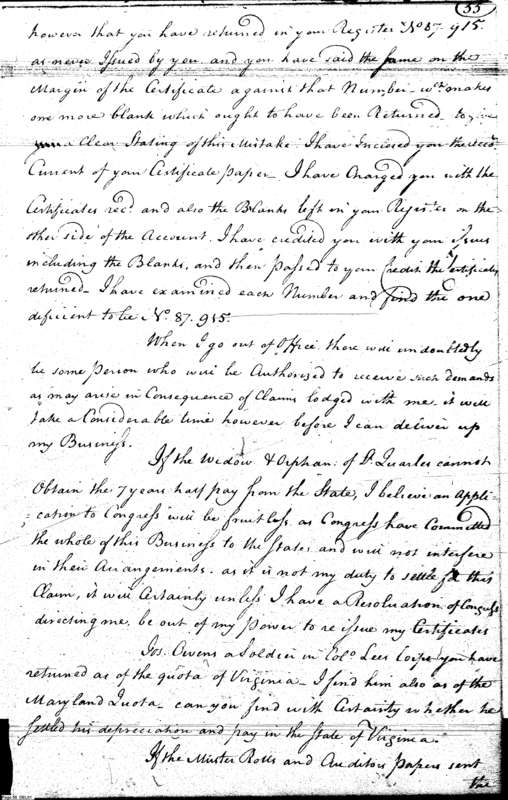 55
however that you have returned in your Register No 87.915.
as never Issued by you and you have said the same on the
Margin of the Certificate against that Number - wch makes
one more blank which ought to have been Returned - to give
you a Clear Stating of this Mistake I have Inclosed you the
Current of your Certificate paper - I have Charged you with the
Certificates recd. and also the Blanks left in your Registr. on the
other side of the Account. I have credited you with your issues
including the Blanks, and then passed to your Credit the Certificates
returned - I have examined each Number and find the one
deficient to be No. 87.915.
When I go out of Office there will undoubtedly
be some person who will be Authorised to receive such demands
as may arise in Consequence of Claims lodged with me. it will
take a Considerable time however before I can deliver up
my Business.
If the Widow & Orphan: of Lt. Quarles cannot
Obtain the 7 years half pay from the State, I believe an Appli-
:cation to Congress will be fruitless. as Congress have Committed
the whole of this Business to the States and will not interfere
in their Arrangements. as it is not my duty to settle this
Claim, it will Certainly unless I have a Resoluation of Congress
directing me, be out of my power to re issue my Certificates
Jos. Owens a Soldier in Colo. Lees Corps you have
returned as of the quota of Virginia - I find him also as of the
Maryland Quota - can you find with Certainty whether he
settled his depreciation and pay in the State of Virginia.
If the Muster Rolls and Auditors papers sent
the